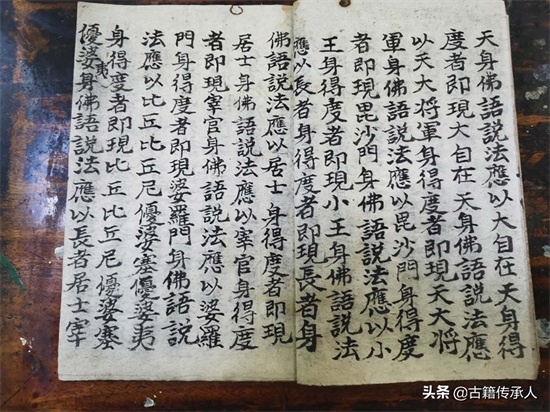 天身佛語說法應以大自在天身得
度者即現大自在天身佛語說法應
以天大將軍身得度者即現天大將
軍身佛語說法應以毘沙門身得度
者即現毘沙門身佛語說法應以小
王身得度者即現小王身佛語說法
應以長者身得度者即現長者身
佛語說法應以居士身得度者即現
居士身佛語說法應以宰官身得度
者即現宰官身佛語說法應以婆羅
門身得度者即現婆羅門身佛語說
法應以比丘比丘尼優婆塞優婆夷
身得度者即現比丘比丘尼優婆塞
優婆夷身佛語說法應以長者居士宰
头条 @古籍传承人